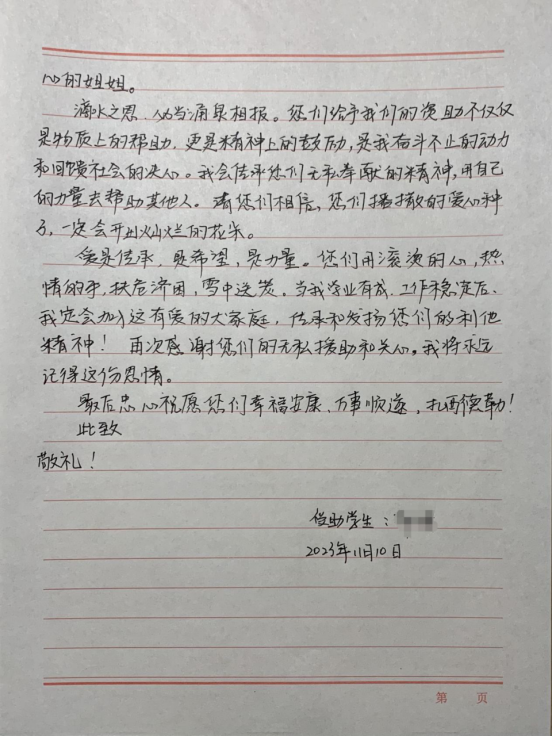 心的姐姐。
滴水之恩，必当涌泉相报。您们给予我们的资助不仅仅
是物质上的帮助，更是精神上的鼓励，是我奋斗不止的动力
和回馈社会的决心。我会传承您们无私奉献的精神，用自己
的力量去帮助其他人。请您们相信，您们播撒的爱心种
子，一定会开出灿烂的花朵。
爱是传承，是希望，是力量。您们用滚烫的心，热
情的手，扶危济困，雪中送炭。当我学业有成、工作稳定后，
我定会加入这有爱的大家庭，传承和发扬您们的利他
精神！再次感谢您们的无私援助和关心。我将永远
记得这份恩情。
最后忠心祝愿您们幸福安康、万事顺遂，扎西德勒！
此致
敬礼！
受助学生：
2023年11月10日
第 页